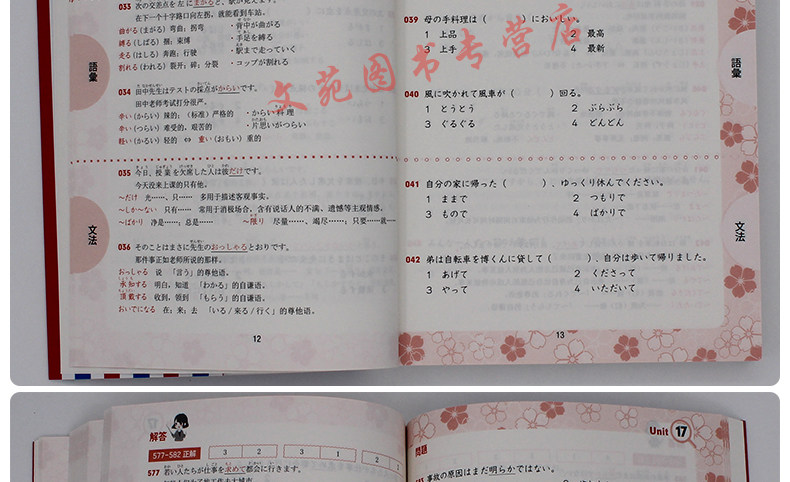 033 次の交差点を左にまがると、駅が見えます。
在下一个十字路口向左拐，就能看到车站。
曲がる（まがる）弯曲；拐弯 ・背中が曲がる
縛る（しばる）捆；束博 ・手足を縛る
走る（はしる）奔跑；行驶 ・駅まで走っていく
割れる（われる）裂开；碎；分裂 ・コップが割れる
語彙
034 田中先生はテストの採点がからいです。
田中老师考试打分很严。
辛い（からい）辣的；（标准）严格的 ・からい料理
辛い（つらい）难受的，艰苦的 ・片思いがつらい
軽い（かるい）轻的 ⇔ 重い（おもい）重的
035 今日、授業を欠席した人は彼だけです。
今天没来上课的只有他。
～だけ 光……、只…… 多用于描述客观事实。
～しか～ない 只有…… 常用于消极场合，含有说话人的不满、遗憾等主观情感。
～ばかり 净是……；总是…… ～限り 尽量……、竭尽……；只要……就……
文法
036 そのことはまさに先生のおっしゃるとおりです。
那件事正如老师所说的那样。
おっしゃる 说 「言う」的尊他语。
承知する 明白，知道 「わかる」的自谦语。
頂戴する 收到，领到 「もらう」的自谦语。
おいでになる 在；来；去 「いる／来る／行く」的尊他语。
12
039 母の手料理は（　　）においしい。
1 上品 2 最高
3 上手 4 最新
語彙
040 風に吹かれて風車が（　　）回る。
1 とうとう 2 ぶらぶら
3 ぐるぐる 4 どんどん
041 自分の家に帰った（　　）、ゆっくり休んでください。
1 ままで 2 つもりで
3 もので 4 ばかりで
文法
042 弟は自転車を博くんに貸して（　　）、自分は歩いて帰りました。
1 あげて 2 くださって
3 やって 4 いただいて
13
文苑图书专营店
17
解答
577-582 正解 3 2 3 1 2 1
577 若い人たちが仕事を求めて都会に行きます。
Unit 17
問題
事故の原因はまだ明らかではない。